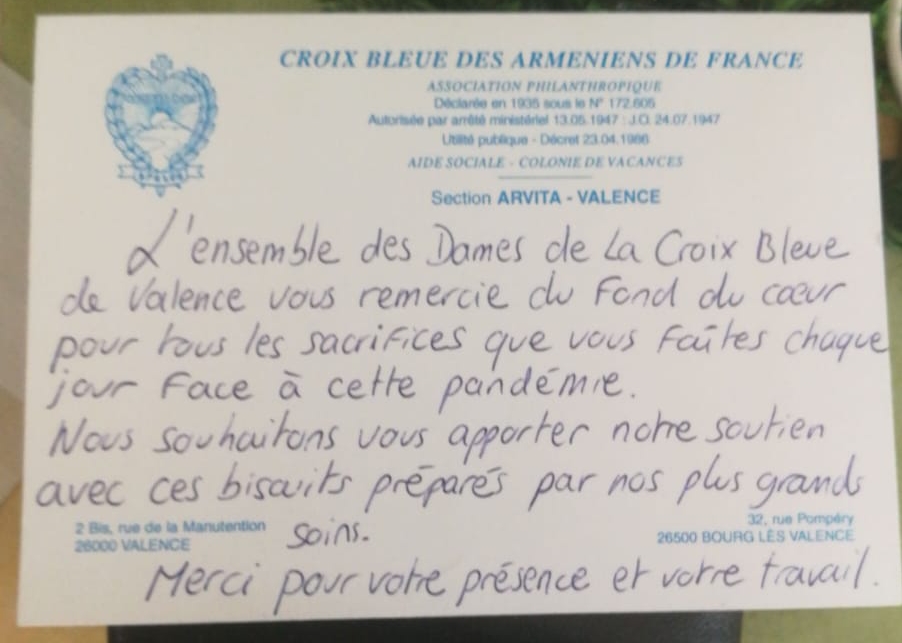 CROIX BLEUE DES ARMENIENS DE FRANCE
ASSOCIATION PHILANTHROPIQUE
Déclarée en 1935 sous le N° 172.605
Autorisée par arrêté ministériel 13.05.1947 : J.O. 24.07.1947
Utilité publique - Décret 23.04.1986
AIDE SOCIALE - COLONIE DE VACANCES
Section ARVITA - VALENCE
L'ensemble des Dames de La Croix Bleue
de Valence vous remercie du Fond du cœur
pour tous les sacrifices que vous faîtes chaque
jour Face à cette pandémie.
Nous souhaitons vous apporter notre soutien
avec ces biscuits préparés par nos plus grands
soins.
2 Bis, rue de la Manutention
26000 VALENCE
32, rue Pompéry
26500 BOURG LÈS VALENCE
Merci pour votre présence et votre travail.